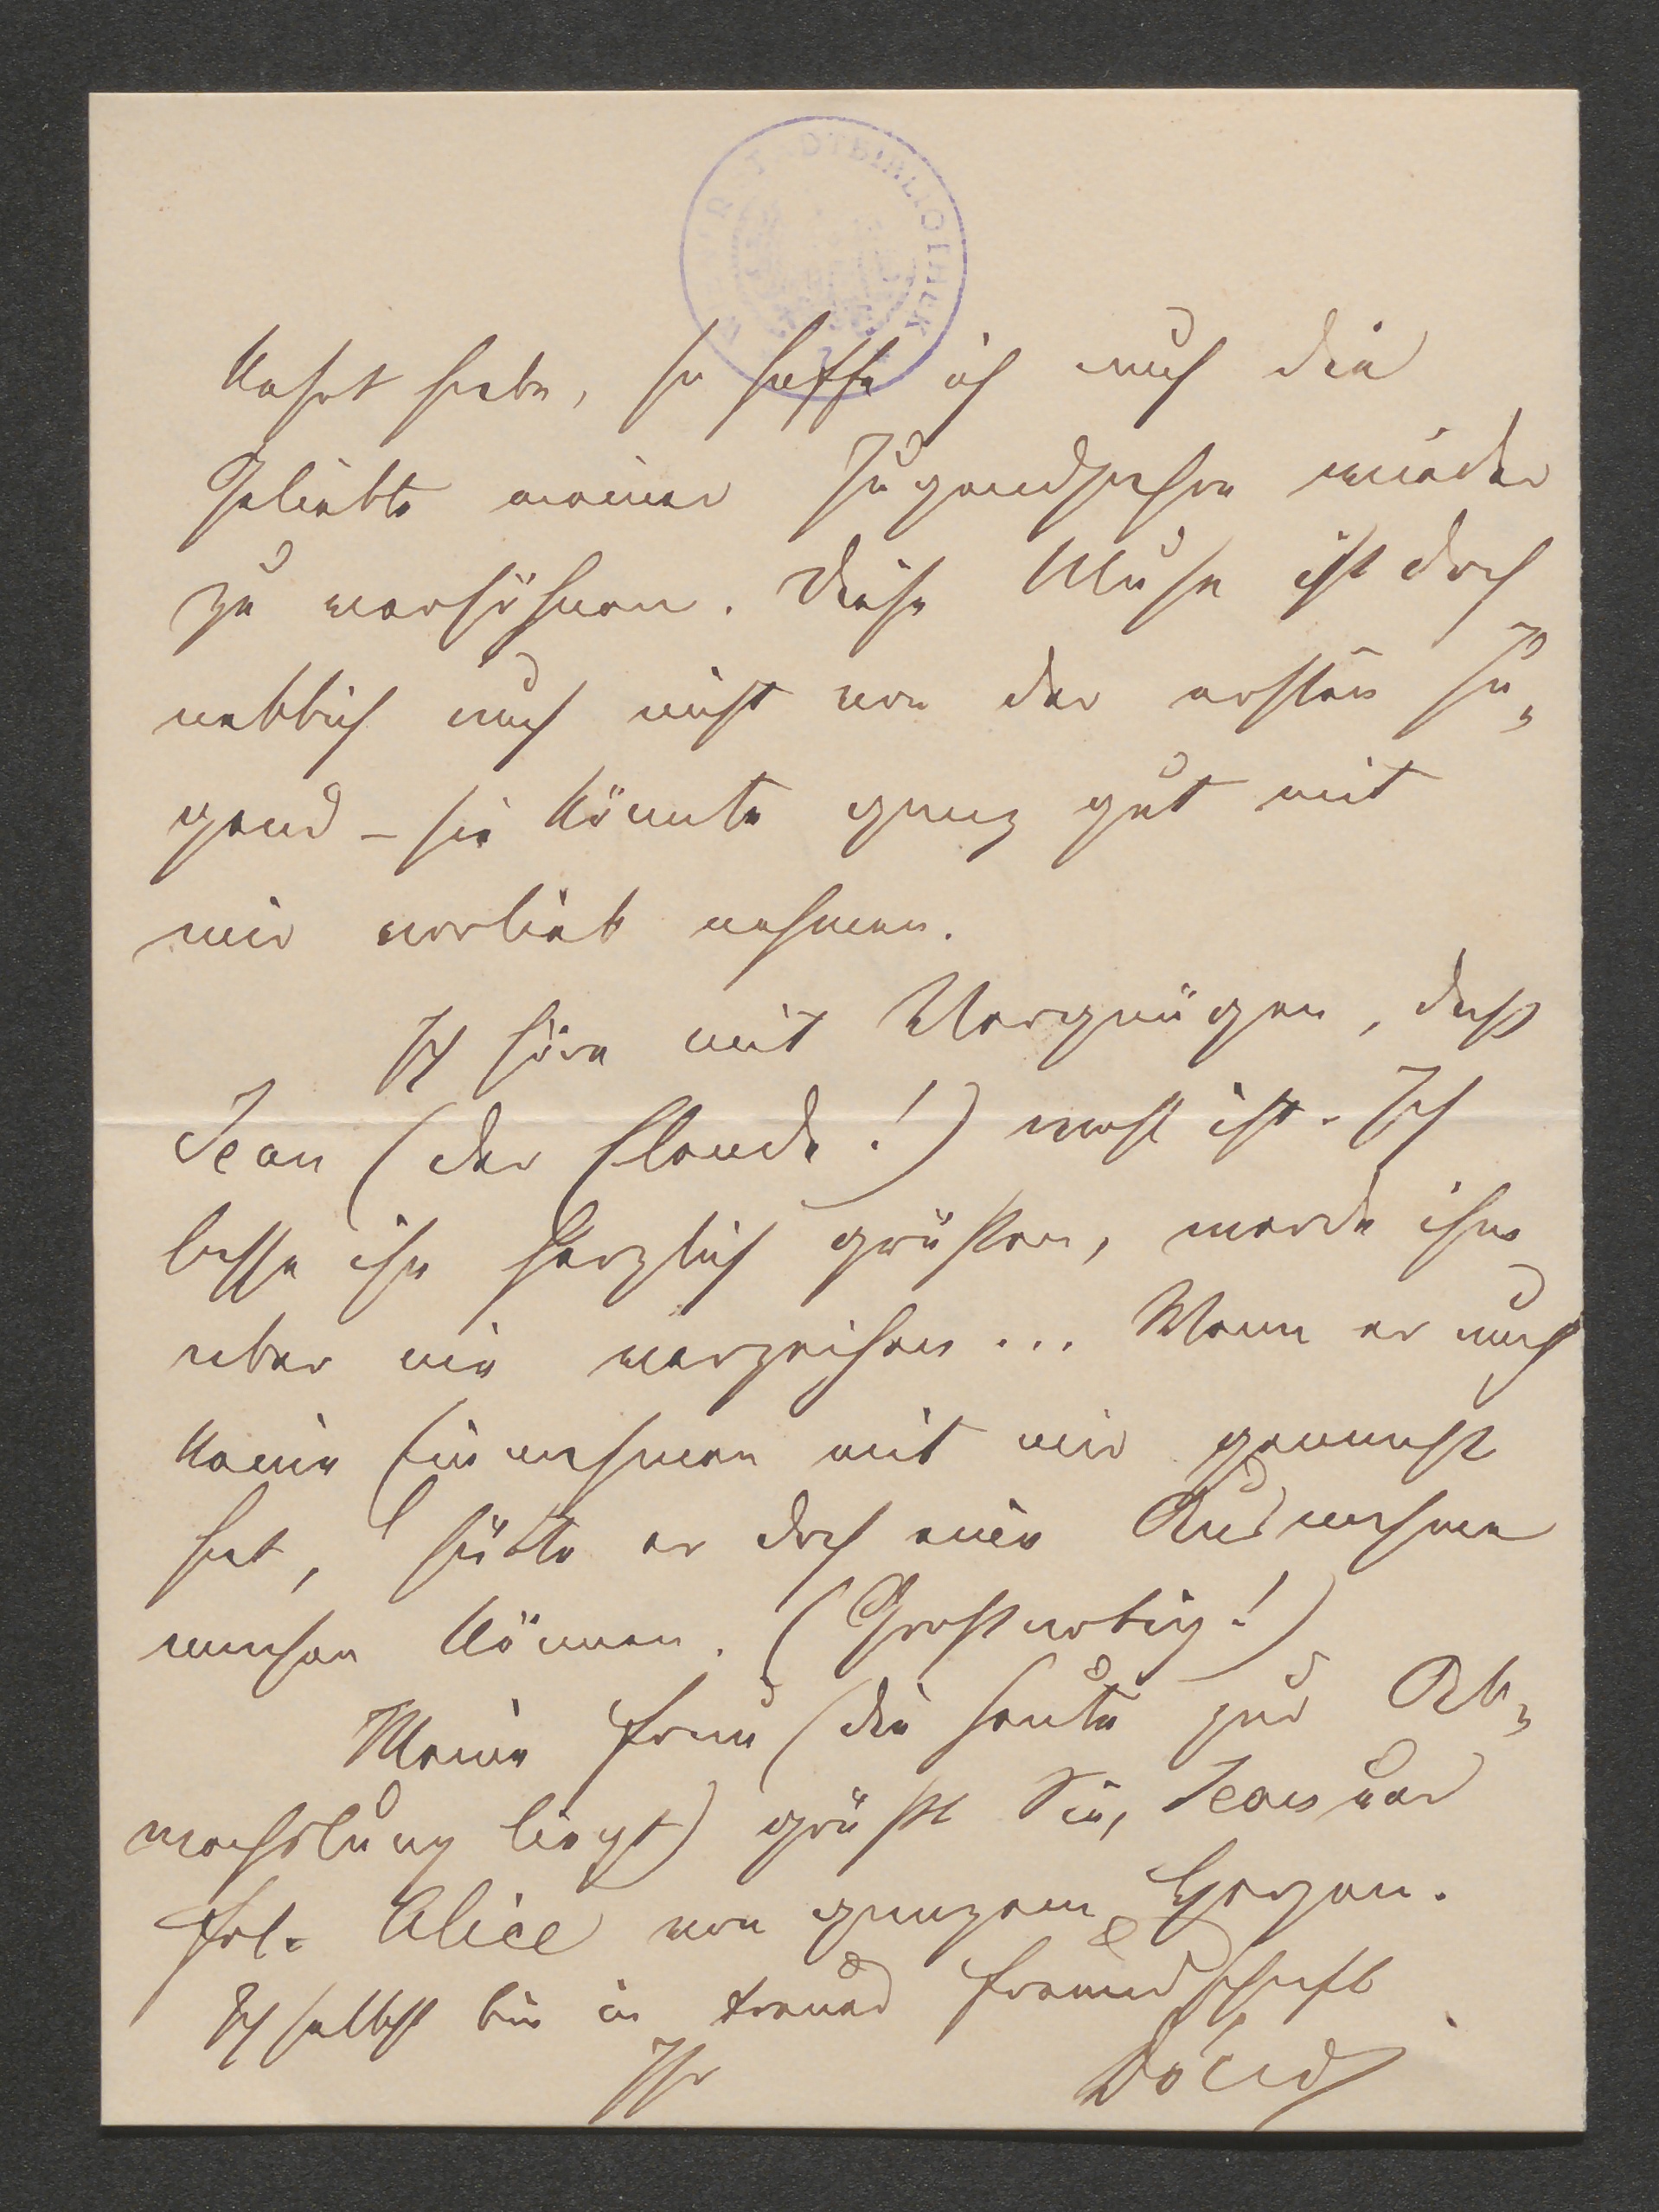 WIENER STADTBIBLIOTHEK
kehrt habe, so hoffe ich auch die
Geliebte meiner Jugendjahre wieder
zu versöhnen. Diese Muse ist doch
nebbich auch nicht von der ersten Ju-
gend – sie könnte ganz gut mit
mir vorlieb nehmen.
Ich höre mit Vergnügen, daß
Jean (der Elende!) wohl ist. Ich
lasse ihn herzlich grüßen, werde ihm
aber nie verzeihen... Wenn er auch
keine Einnahmen mit mir gemacht
hat, hätte er doch eine Ausnahme
machen können. (Großartig!)
Meine Frau (die heute zur Ab-
wechslung liegt) grüßt Sie, Jean und
Frl. Alice von ganzem Herzen.
Ich selbst bin in treuer Freundschaft
Ihr Dóczi